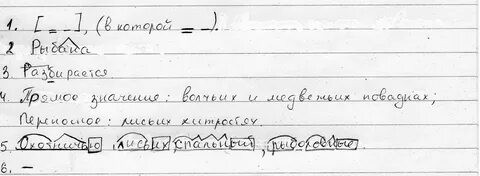 1. [ = – ], (в которой = –).
2 Рыбака
3. Разбирается
4. Прямое значение: волчьих и медвежьих повадках;
Переносное: лисьих хитростях.
5. Охотничью, лисьих, спальный, рыболовные.
6. –